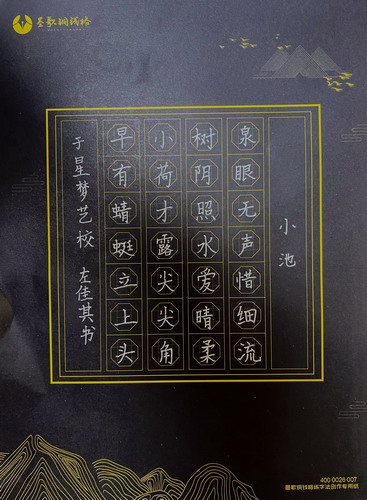 墨歌铜钱格
小池
泉眼无声惜细流
树阴照水爱晴柔
小荷才露尖尖角
早有蜻蜓立上头
于星梦艺校 左佳其书
400-0026-007
墨歌铜钱格练字法创作专用纸